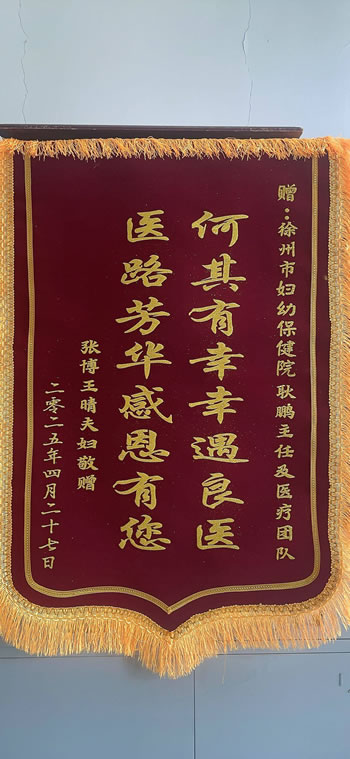 赠：徐州市妇幼保健院耿鹏主任及医疗团队
何其有幸幸遇良医
医路芳华感恩有您
张博王晴夫妇敬赠
二零二五年四月二十七日